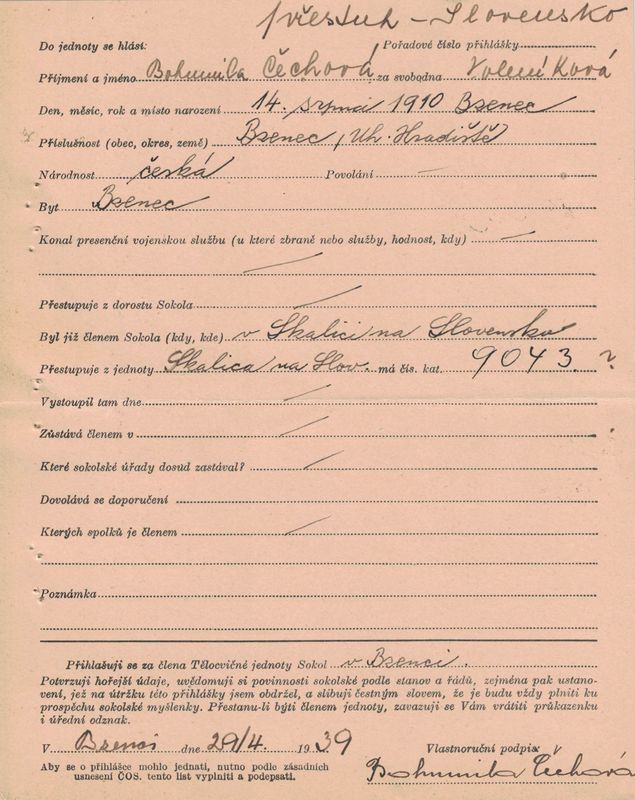 přestup - Slovensko
Do jednoty se hlásí: Pořadové číslo přihlášky
Příjmení a jméno Bohumila Čechová za svobodna Voleníková
Den, měsíc, rok a místo narození 14. srpna 1910 Bzenec
Příslušnost (obec, okres, země) Bzenec, Uh. Hradiště
Národnost česká Povolání —
Byt Bzenec
Konal presenční vojenskou službu (u které zbraně nebo služby, hodnost, kdy) —
Přestupuje z dorostu Sokola
Byl již členem Sokola (kdy, kde) v Skalici na Slovensku
Přestupuje z jednoty Skalica na Slov. má čís. kat. 9043. ?
Vystoupil tam dne
Zůstává členem v
Které sokolské úřady dosud zastával?
Dovolává se doporučení
Kterých spolků je členem
Poznámka
Přihlašuji se za člena Tělocvičné jednoty Sokol v Bzenci.
Potvrzuji hořejší údaje, uvědomuji si povinnosti sokolské podle stanov a řádů, zejména pak ustano-
vení, jež na útržku této přihlášky jsem obdržel, a slibuji čestným slovem, že je budu vždy plniti ku
prospěchu sokolské myšlenky. Přestanu-li býti členem jednoty, zavazuji se Vám vrátiti průkazenku
i úřední odznak.
V Bzenci dne 29/4. 1939 Vlastnoruční podpis:
Aby se o přihlášce mohlo jednati, nutno podle zásadních
usnesení ČOS. tento list vyplniti a podepsati. Bohumila Čechová